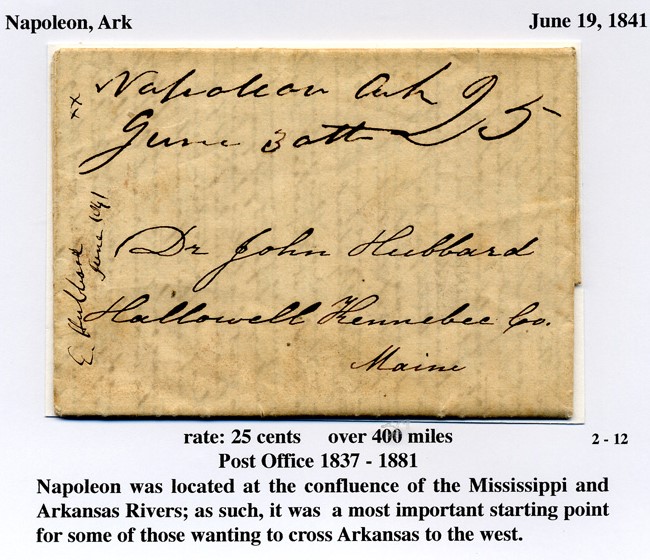 Napoleon, Ark
June 19, 1841
Napoleon Ark 25
June 30th
xx
E. Hubbard
June 1841
Dr John Hubbard
Hallowell Kennebec Co.
Maine
rate: 25 cents over 400 miles
2 - 12
Post Office 1837 - 1881
Napoleon was located at the confluence of the Mississippi and
Arkansas Rivers; as such, it was a most important starting point
for some of those wanting to cross Arkansas to the west.